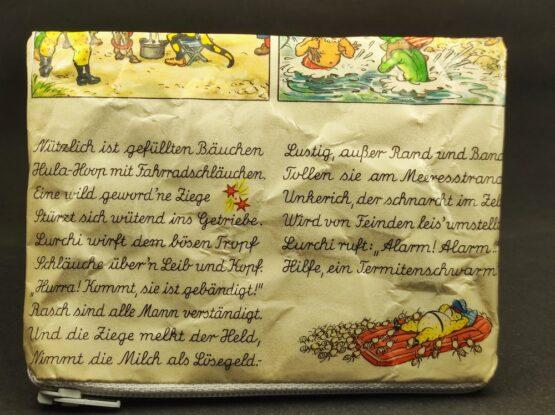 Nützlich ist gefüllten Bäuchen
Hula-Hoop mit Fahrradschläuchen.
Eine wild geword'ne Ziege
Stürzt sich wütend ins Getriebe.
Lurchi wirft dem bösen Tropf
Schläuche über'n Leib und Kopf.
„Hurra! Kommt, sie ist gebändigt!"
Rasch sind alle Mann verständigt.
Und die Ziege melkt der Held,
Nimmt die Milch als Lösegeld.-
Lustig, außer Rand und Band
Tollen sie am Meeresstrand
Unkerich, der schnarcht im Zel
Wird von Feinden leis' umstellt
Lurchi ruft: „Alarm! Alarm
Hilfe, ein Termitenschwarm